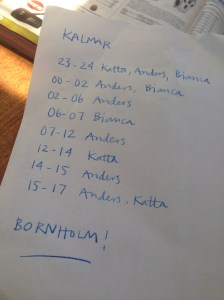 KALMAR
23-24 Katta, Anders, Bianca
00-02 Anders, Bianca
02-06 Anders
06-07 Bianca
07-12 Anders
12-14 Katta
14-15 Anders
15-17 Anders, Katta
BORNHOLM!